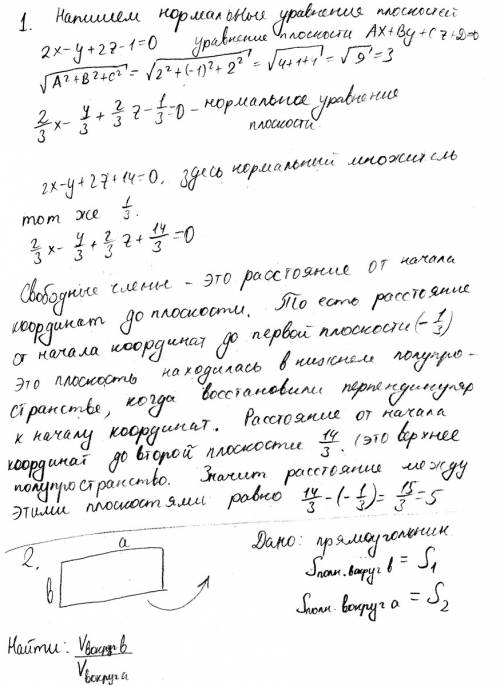 1. Напишем нормальные уравнения плоскостей
2x-y+2z-1=0 уравнение плоскости Ax+By+Cz+D=0
√A²+B²+C² = √2²+(-1)²+2² = √4+1+4 = √9 = 3
2/3 x - y/3 + 2/3 z - 1/3 = 0 - нормальное уравнение
плоскости.
2x-y+2z+14=0. Здесь нормальный множитель
тот же 1/3.
2/3 x - y/3 + 2/3 z + 14/3 = 0
Свободные члены - это расстояние от начала
координат до плоскости. То есть расстояние
от начала координат до первой плоскости (-1/3)
это плоскость находилась в нижнем полупро-
странстве, когда восстановили перпендикуляр
к началу координат. Расстояние от начала
координат до второй плоскости 14/3. (это верхнее
полупространство. Значит расстояние между
этими плоскостями равно 14/3 - (-1/3) = 15/3 = 5
2. a
b
Дано: прямоугольник
Sполн. вокруг b = S1
Sполн. вокруг a = S2
Найти: Vвокруг b / Vвокруг a